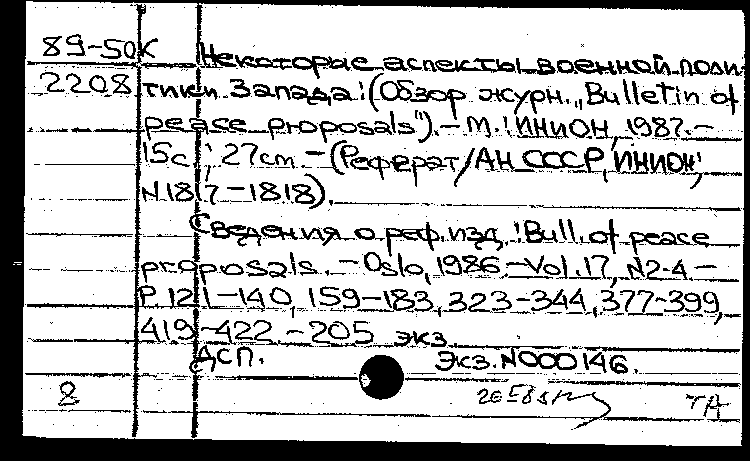 89-50К Некоторые аспекты военной поли-
2208 тики Запада: (Обзор журн. „Bulletin of
peace proposals"). – М.: ИНИОН, 1987. –
15с.; 27cm – (Реферат/АН СССР, ИНИОН;
N1817–1818).
Сведения о реф. изд.: Bull. of peace
proposals. – Oslo, 1986. – Vol. 17, N2-4 –
P. 121–140, 159–183, 323–344, 377–399,
419–422. – 205 экз.
ДСП. Экз. N000146.
8 ТА